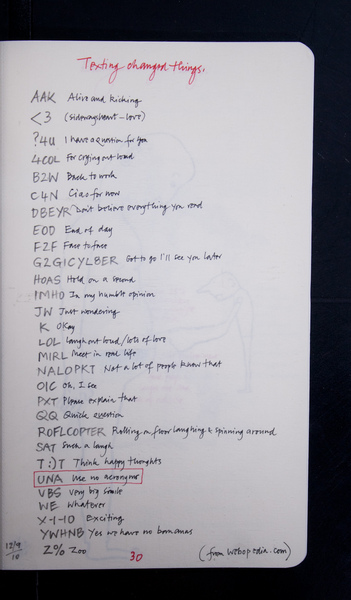 Texting changed things.
AAK Alive and kicking
<3 (sideways heart - love)
?4U I have a question for you
4COL For crying out loud
B2W Back to work
C4N Ciao for now
DBEYR Don't believe everything you read
EOD End of day
F2F Face to face
G2GICYLBER Got to go I'll see you later
HOAS Hold on a second
IMHO In my humble opinion
JW Just wondering
K Okay
LOL Laugh out loud / lots of love
MIRL Meet in real life
NALOPKT Not a lot of people know that
OIC Oh, I see
PXT Please explain that
QQ Quick question
ROFLCOPTER Rolling on floor laughing & spinning around
SAT Such a laugh
T:)T Think happy thoughts
UNA Use no acronyms
VBS Very big smile
WE Whatever
X-I-10 Exciting
YWHNB Yes we have no bananas
Z% Zoo
12/9
10
30
(from webopedia.com)